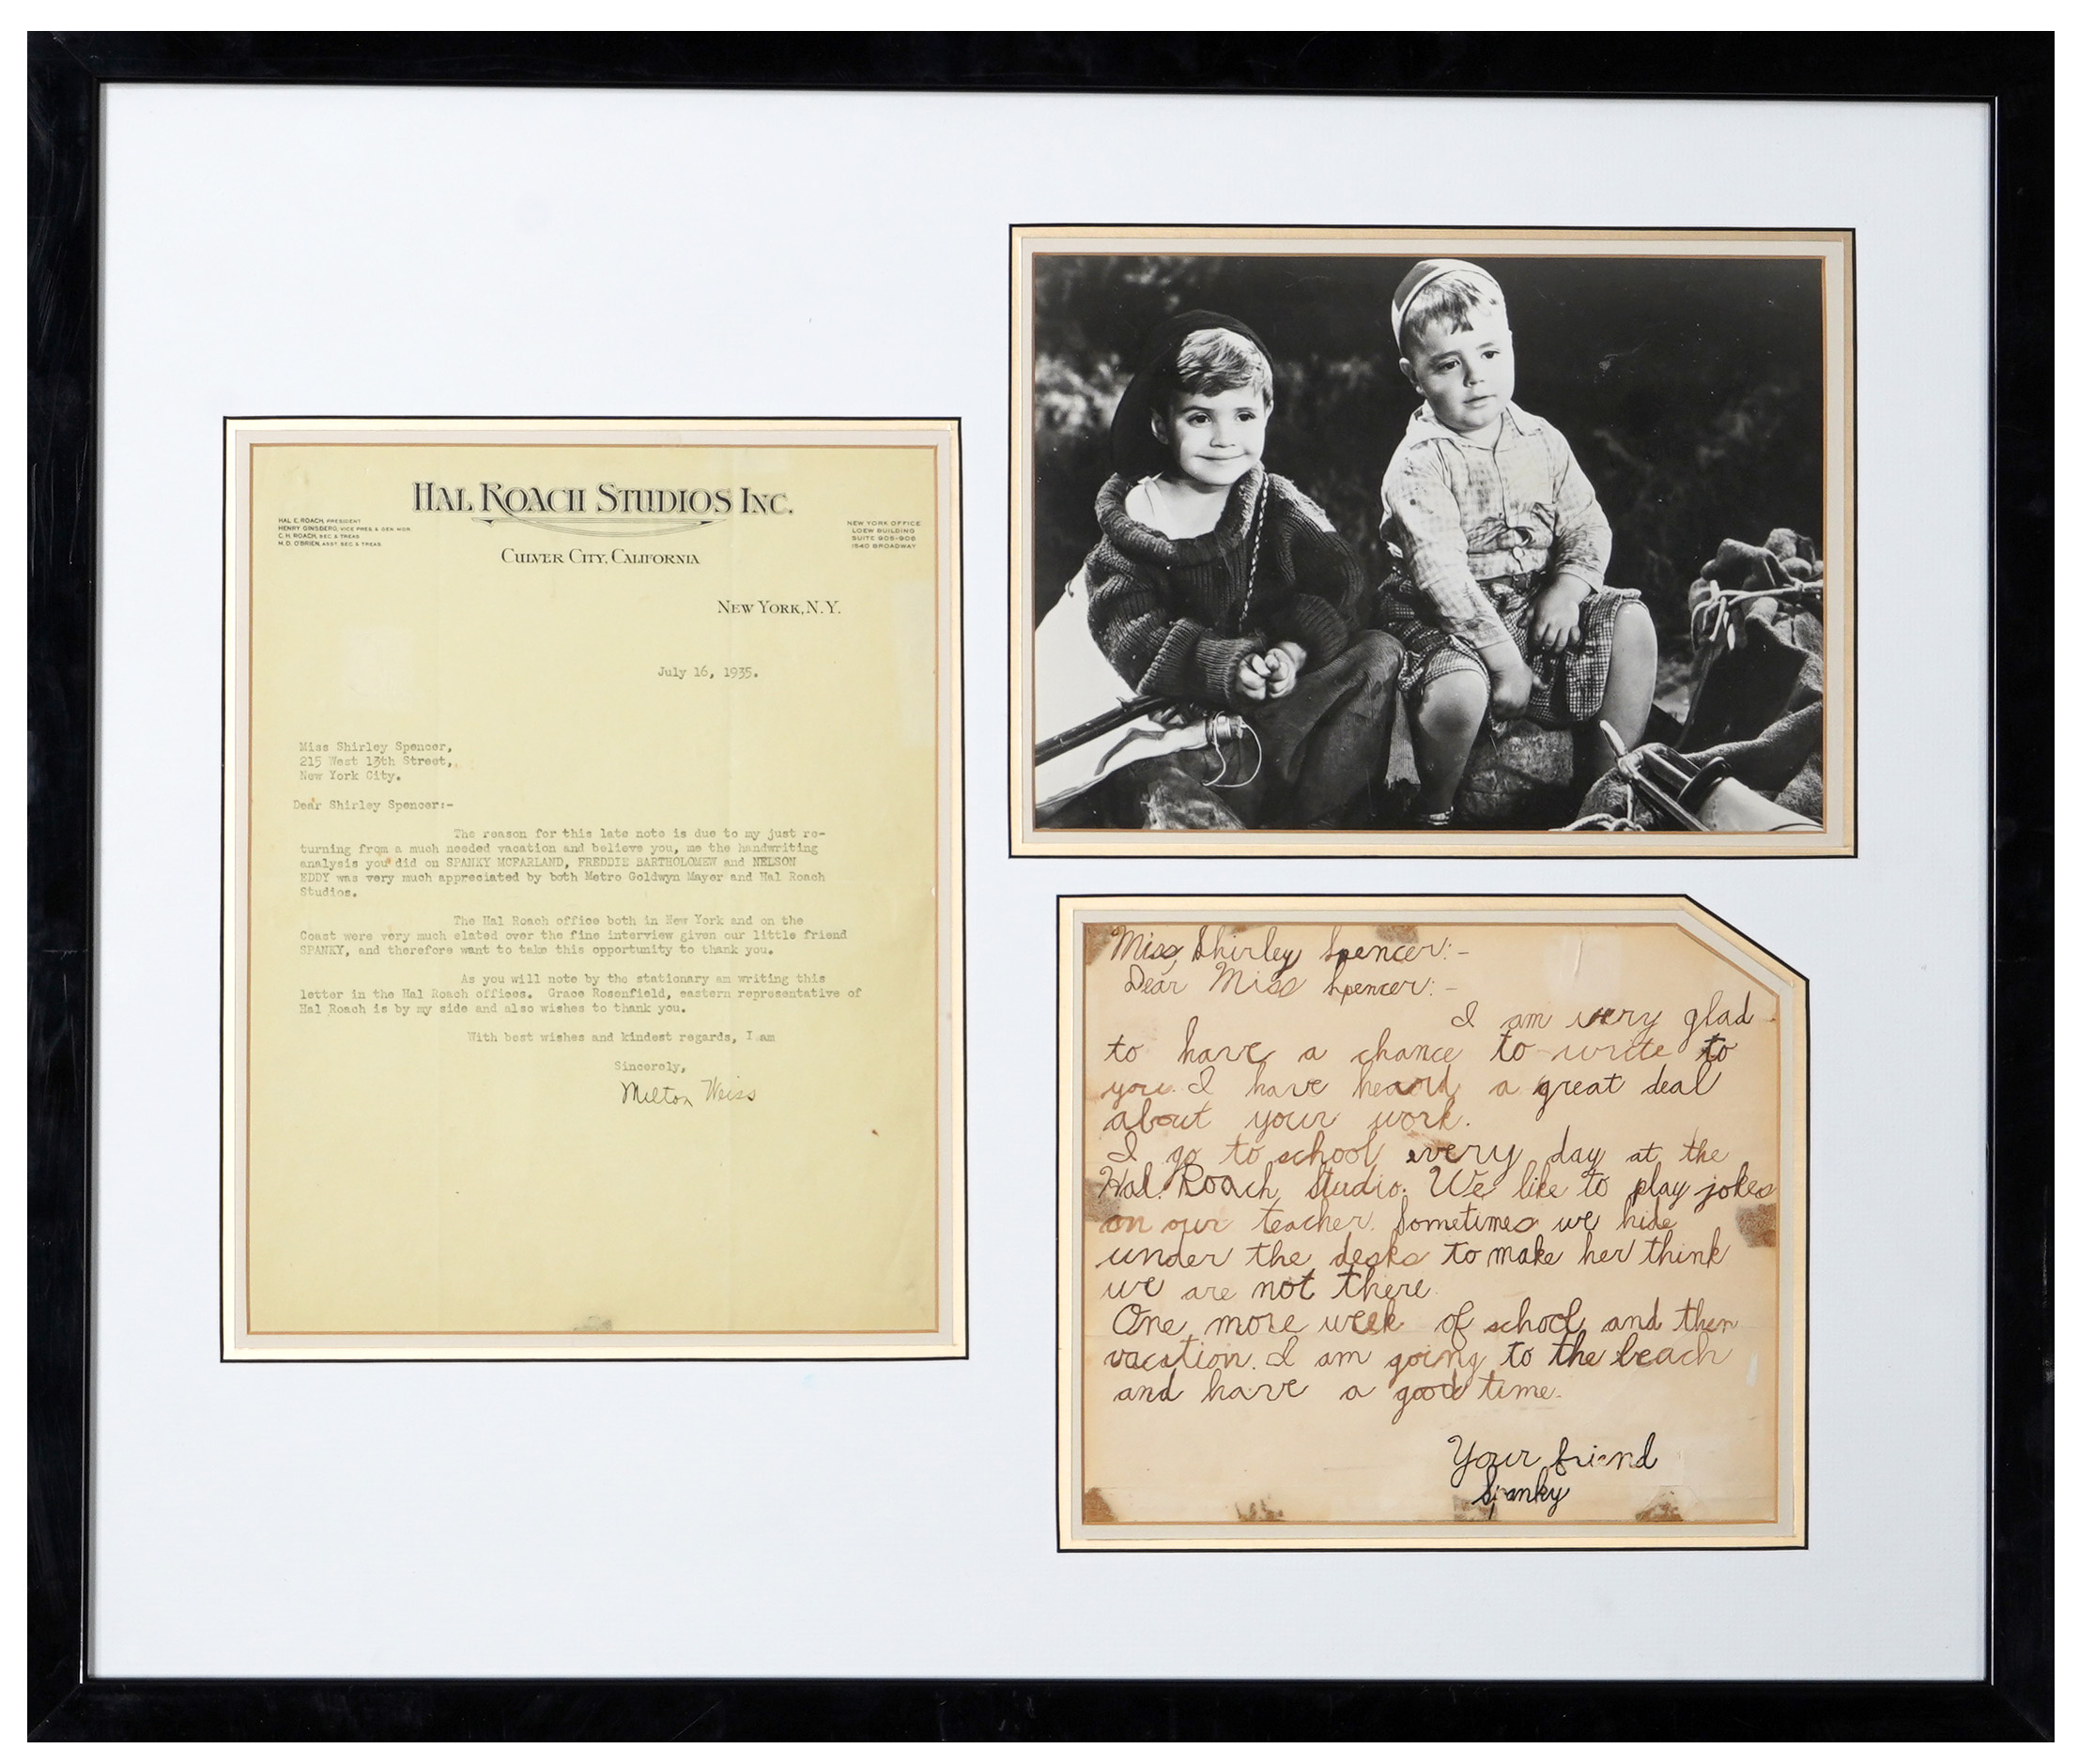 HAL ROACH STUDIOS INC.
HAL E. ROACH, PRESIDENT
HENRY GINSBERG, VICE PRES. & GEN. MGR.
C. H. ROACH, SEC. & TREAS.
M. D. O'BRIEN, ASST. SEC. & TREAS.
NEW YORK OFFICE
LOEW BUILDING
SUITE 905-906
1540 BROADWAY
CULVER CITY, CALIFORNIA
NEW YORK, N.Y.
July 16, 1935.
Miss Shirley Spencer,
215 West 13th Street,
New York City.
Dear Shirley Spencer:-
The reason for this late note is due to my just re-
turning from a much needed vacation and believe you, me the handwriting
analysis you did on SPANKY MCFARLAND, FREDDIE BARTHOLOMEW and NELSON
EDDY was very much appreciated by both Metro Goldwyn Mayer and Hal Roach
Studios.
The Hal Roach office both in New York and on the
Coast were very much elated over the fine interview given our little friend
SPANKY, and therefore want to take this opportunity to thank you.
As you will note by the stationary am writing this
letter in the Hal Roach offices. Grace Rosenfield, eastern representative of
Hal Roach is by my side and also wishes to thank you.
With best wishes and kindest regards, I am
Sincerely,
Milton Weiss
Miss Shirley Spencer:-
Dear Miss Spencer:-
I am very glad
to have a chance to write to
you. I have heard a great deal
about your work.
I go to school every day at the
Hal Roach Studio. We like to play jokes
on our teacher. Sometimes we hide
under the desks to make her think
we are not there.
One more week of school and then
vacation. I am going to the beach
and have a good time.
Your friend
Spanky